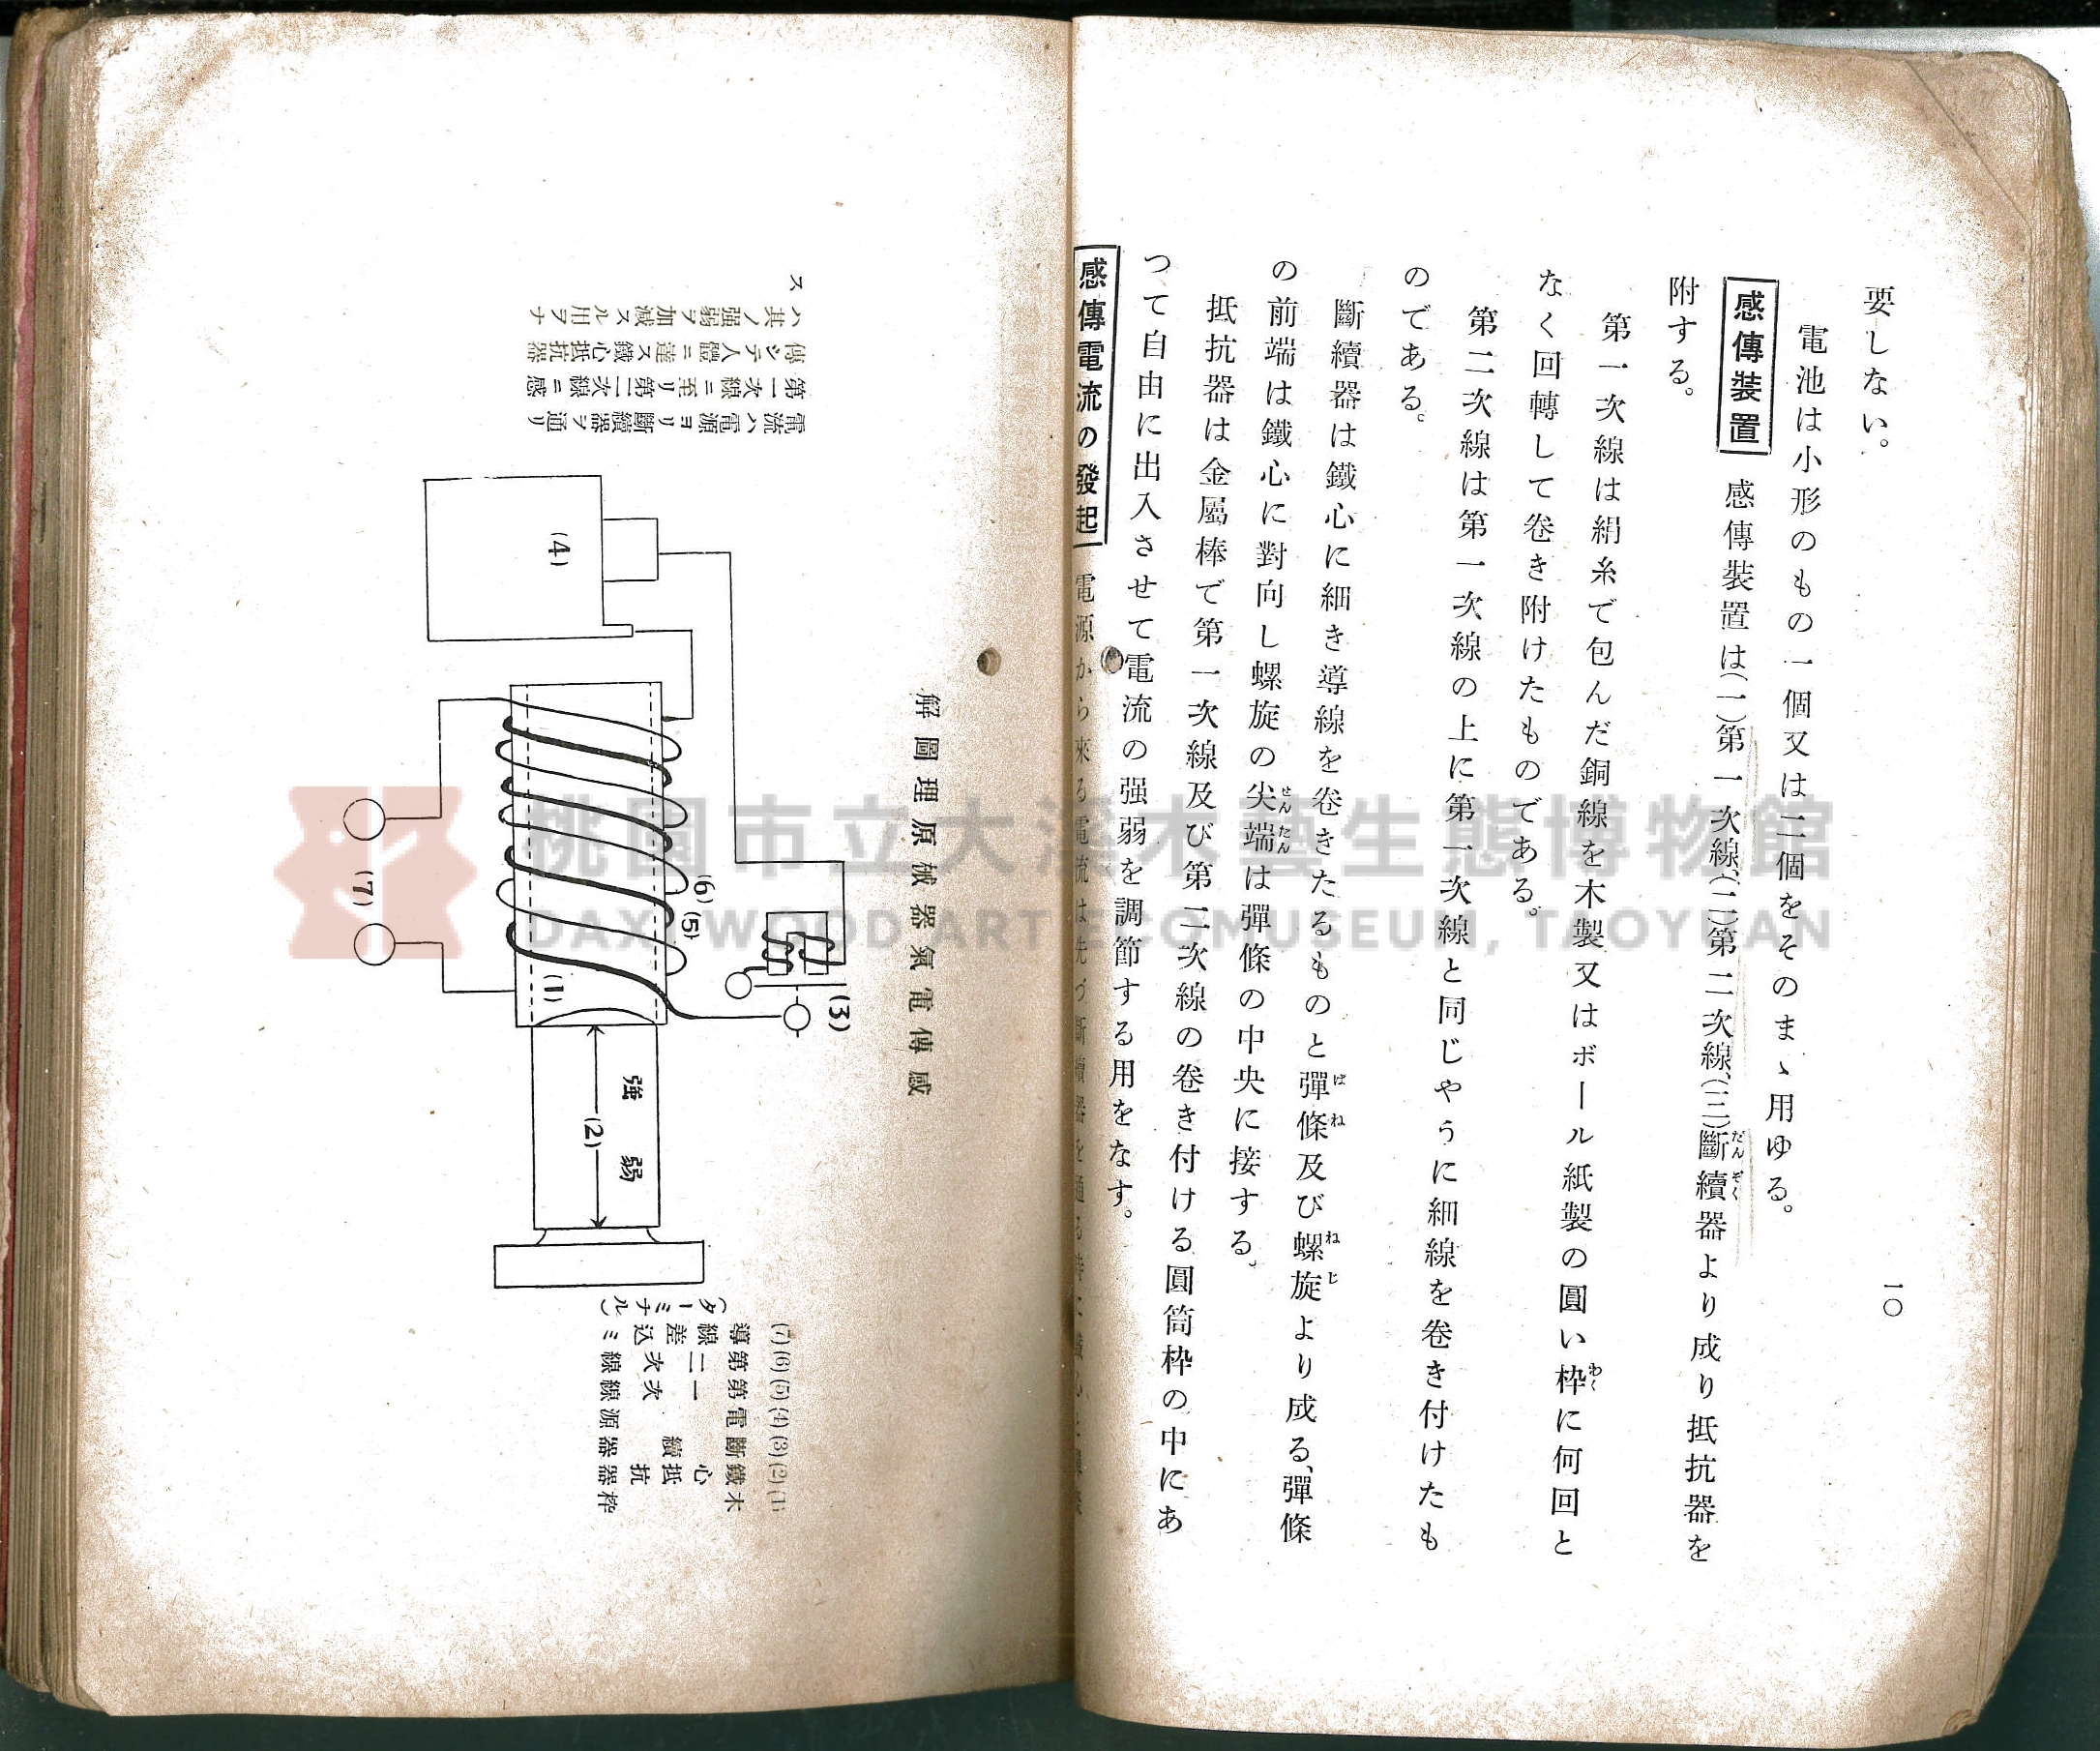 一〇
要しない。
電池は小形のもの一個又は二個をそのまゝ用ゆる。
感傳裝置 感傳裝置は(一)第一次線、(二)第二次線、(三)斷續器より成り抵抗器を
附する。
第一次線は絹糸で包んだ銅線を木製又はボール紙製の圓い枠に何回と
なく回轉して卷き附けたものである。
第二次線は第一次線の上に第一次線と同じやうに細線を卷き付けたも
のである。
斷續器は鐵心に細き導線を卷きたるものと彈條及び螺旋より成る、彈條
の前端は鐵心に對向し螺旋の尖端は彈條の中央に接する。
抵抗器は金屬棒で第一次線及び第二次線の卷き付ける圓筒枠の中にあ
つて自由に出入させて電流の强弱を調節する用をなす。
感傳電流の發起 電源から來る電流は先づ斷續器を通る時に
感傳電氣器械原理圖解
(1)木枠
(2)鐵心抵抗器
(3)斷續器
(4)電源
(5)第一次線
(6)第二次線
(7)導線差込ミ
(ターミナル)
(1)
(2)
强
弱
(3)
(4)
(5)
(6)
(7)
電流ハ電源ヨリ斷續器ヲ通リ
第一次線ニ至リ第二次線ニ感
傳シテ人體ニ達ス鐵心抵抗器
ハ其ノ强弱ヲ加減スル用ヲナ
ス
桃園市立大溪木藝生態博物館
DAXI WOOD ART ECOMUSEUM, TAOYUAN